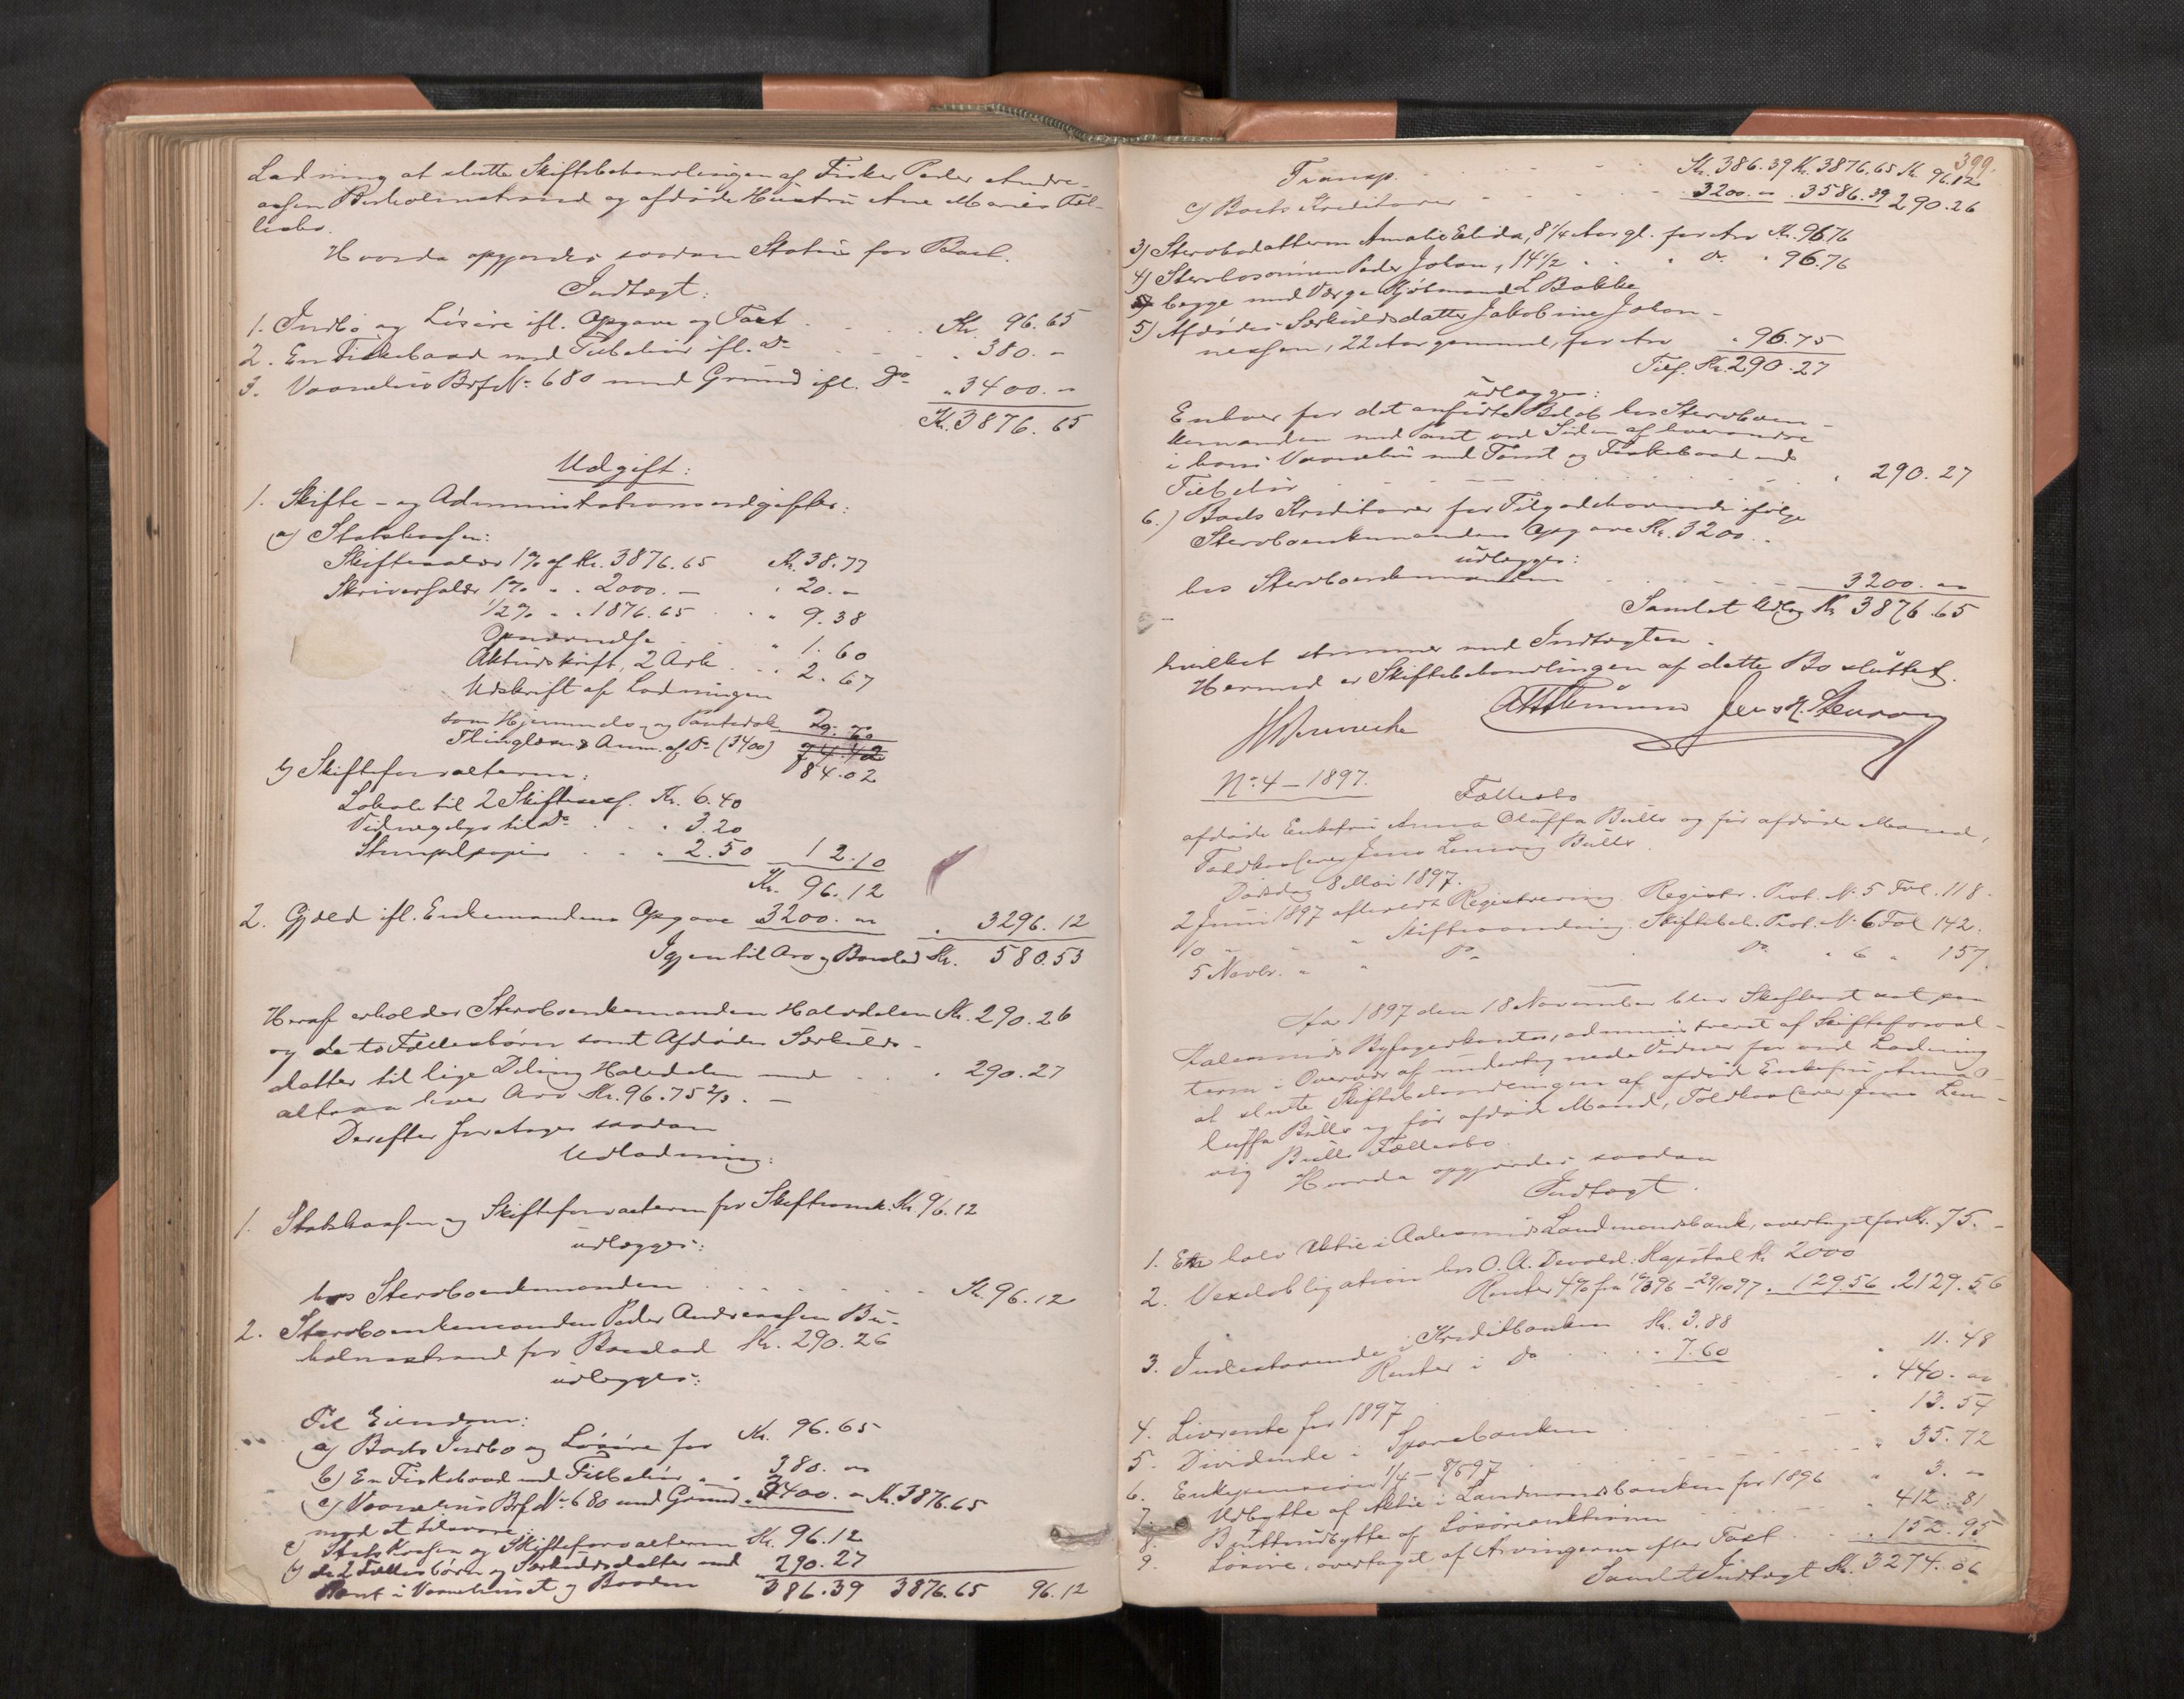 Ladning at slutte Skiftebehandlingen af Fisker Peder Andre-
assen Buholmstrand og afdøde Hustru Ane Maries Fæl-
lesbo.
Hvorda opgjordes saadan Status for Boet.
Indtægt:
1. Indbo og Løsøre ifl. Opgave og Taxt . . . Kr. 96.65
2. En Fiskebaad med Tilbehør ifl. Do . . . " 380. "
3. Vaanehus Brf. No 680 med Grund ifl. Do " 3400. "
Kr. 3876.65
Udgift:
1. Skifte- og Administrationsudgifter:
a) Statskassen:
Skiftesalær 1% af Kr. 3876.65 Kr. 38.77
Skriversalær 1% " " 2000. – " 20. "
1/2% " " 1876.65 " 9.38
" 1. 60
Aktudskrift, 2 Ark . . " 2. 67
Udskrift af Ladningen
som Hjemmels- og Pantedok
Thinglæsn. & Anm. af Do (3400)
84.02
b) Skifteforvalteren:
Lokale til 2 Skiftesaml. Kr. 6.40
Vidnegebyr til Do . . " 3.20
Stempelpapir . . " 2.50 12.10
Kr. 96.12
2. Gjæld ifl. Enkemandens Opgave 3200. " " 3296.12
Igjen til Arv og Boeslod Kr. 580.53
Heraf erholder Sterboenkemanden Halvdelen Kr. 290.26
og de to Fællesbørn samt Afdødes Særkulds-
datter til lige Deling Halvdelen med . . " 290.27
altsaa hver Arv Kr. 96.75 2/3. –
Derefter foretages saadan
Udlodning:
1. Statskassen og Skifteforvalteren for Skifteomk. Kr. 96.12
udlægges:
hos Sterboenkemanden . . . . Kr. 96.12
2. Sterboenkemanden Peder Andreassen Bu-
holmstrand for Boeslod Kr. 290.26
udlægges:
Til Eiendom:
a) Boets Indbo og Løsøre for Kr. 96.65
b) En Fiskebaad med Tilbehør " " 380. "
c) Vaanehus Brf. No 680 med Grund " 3400. " Kr. 3876.65
mod at tilsvare:
a) Statskassen og Skifteforvalteren Kr. 96.12
b) de 2 Fællesbørn og Særkuldsdatter med
Pant i Vaanehuset og Baaden 290.27
386.39 3876.65 96.12
399.
Transp. . . . . Kr. 386.39 Kr. 3876.65 Kr. 96.12
c) Boets Kreditorer . . 3200. " " 3586.39 290.26
3) Sterbodatteren Amalie Elida, 8 1/4 Aar gl. for Arv Kr. 96.76
4) Sterbosønnen Peder Johan, 14 1/2 " " " Do " 96.76
begge med Værge Kjøbmand L Bakke
5) Afdødes Særkuldsdatter Jakobine Johan-
nessen, 22 Aar gammel, for Arv " 96.75
Tils. Kr. 290.27
udlægges:
Enhver for det anførte Beløb hos Sterboen-
kemanden med Pant ved Siden af hverandre
i hans Vaanehus med Tomt og Fiskebaad med
Tilbehør . . . . " 290.27
6.) Boets Kreditorer for Tilgodehavende ifølge
Sterboenkemandens Opgave Kr. 3200. "
udlægges:
hos Sterboenkemanden . . . 3200. "
Samlet Udlæg Kr. 3876.65
hvilket stemmer med Indtægten.
Hermed er Skiftebehandlingen af dette Bo sluttet.
No 4 – 1897.
Fællesbo
afdøde Enkefru Anna Oluffa Bulls og før afdøde Mand,
Toldkasserer Jens Lemvig Bulls.
Dødsdag 8 Mai 1897.
2 Juni 1897 afholdt Registrering. Registr. Prot. No 5 Fol. 118.
10 " " " Skiftesamling. Skiftebeh. Prot. No 6 Fol 142.
5 Novbr. " " Do Do " 6 " 157.
Aar 1897 den 18 November blev Skifteret sat paa
Aalesunds Byfogedkontor, administreret af Skifteforval-
teren i Overvær af undertegnede Vidner for ved Ladning
at slutte Skiftebehandlingen af afdøde Enkefru Anna O-
luffa Bulls og før afdøde Mand, Toldkasserer Jens Lem-
vig Bulls Fællesbo.
Hvorda opgjordes saadan
Indtægt.
1. En halv Aktie i Aalesunds Landmandsbank, overtaget for Kr. 75. "
2. Vexelobligation hos O. A. Devold: Kapital Kr. 2000
Renter 4% fra – 29/10 97 . 129.56 . 2129.56
3. Indestaaende i Kreditbanken Kr. 3.88
Renter i Do . . . 7.60 " 11.48
4. Livrente for 1897 . . . " 440. "
5. Dividende i Sparebanken . . . " 13.54
6. Enkepension 1/4 – 8/5 97 . . . " 35.72
7. Udbytte af Aktie i Landmandsbanken for 1896 " 3. "
8. Bruttoudbytte af Løsøreauktionen . . " 412.81
9. Løsøre, overtaget af Arvingerne efter Taxt . . " 152.95
Samlet Indtægt Kr. 3274.06